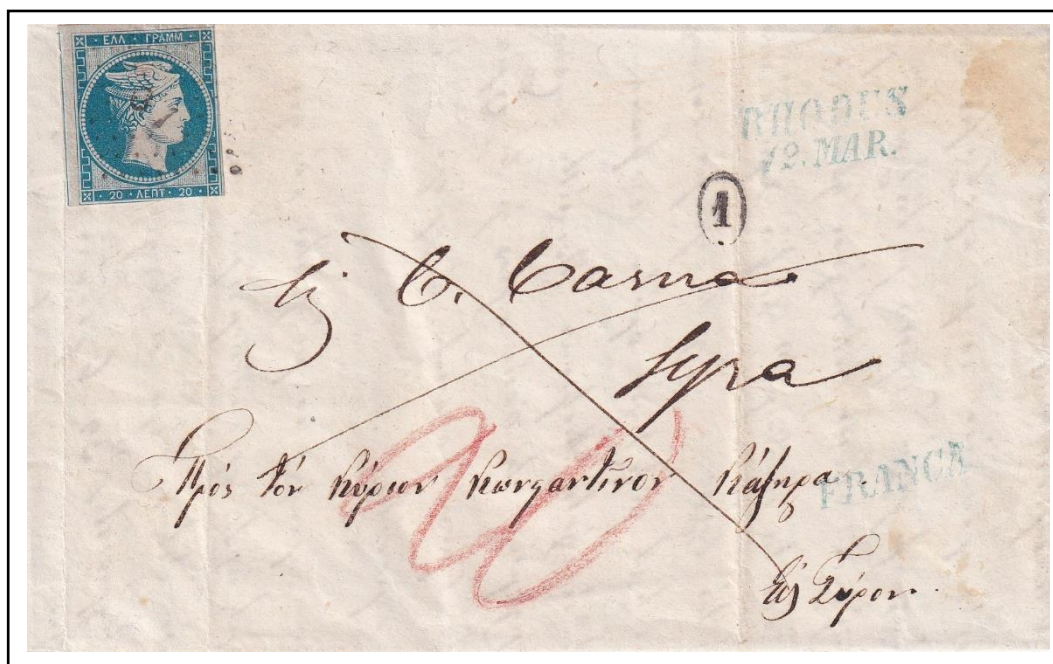 ΕΛΛ · ΓΡΑΜΜ
20 · ΛΕΠΤ · 20
RHODUS
12. MAR.
1
C.
Syra
Πρὸς τὸν Κύριον Κωνσταντῖνον
FRANCA
20
Εἰς Σύρον